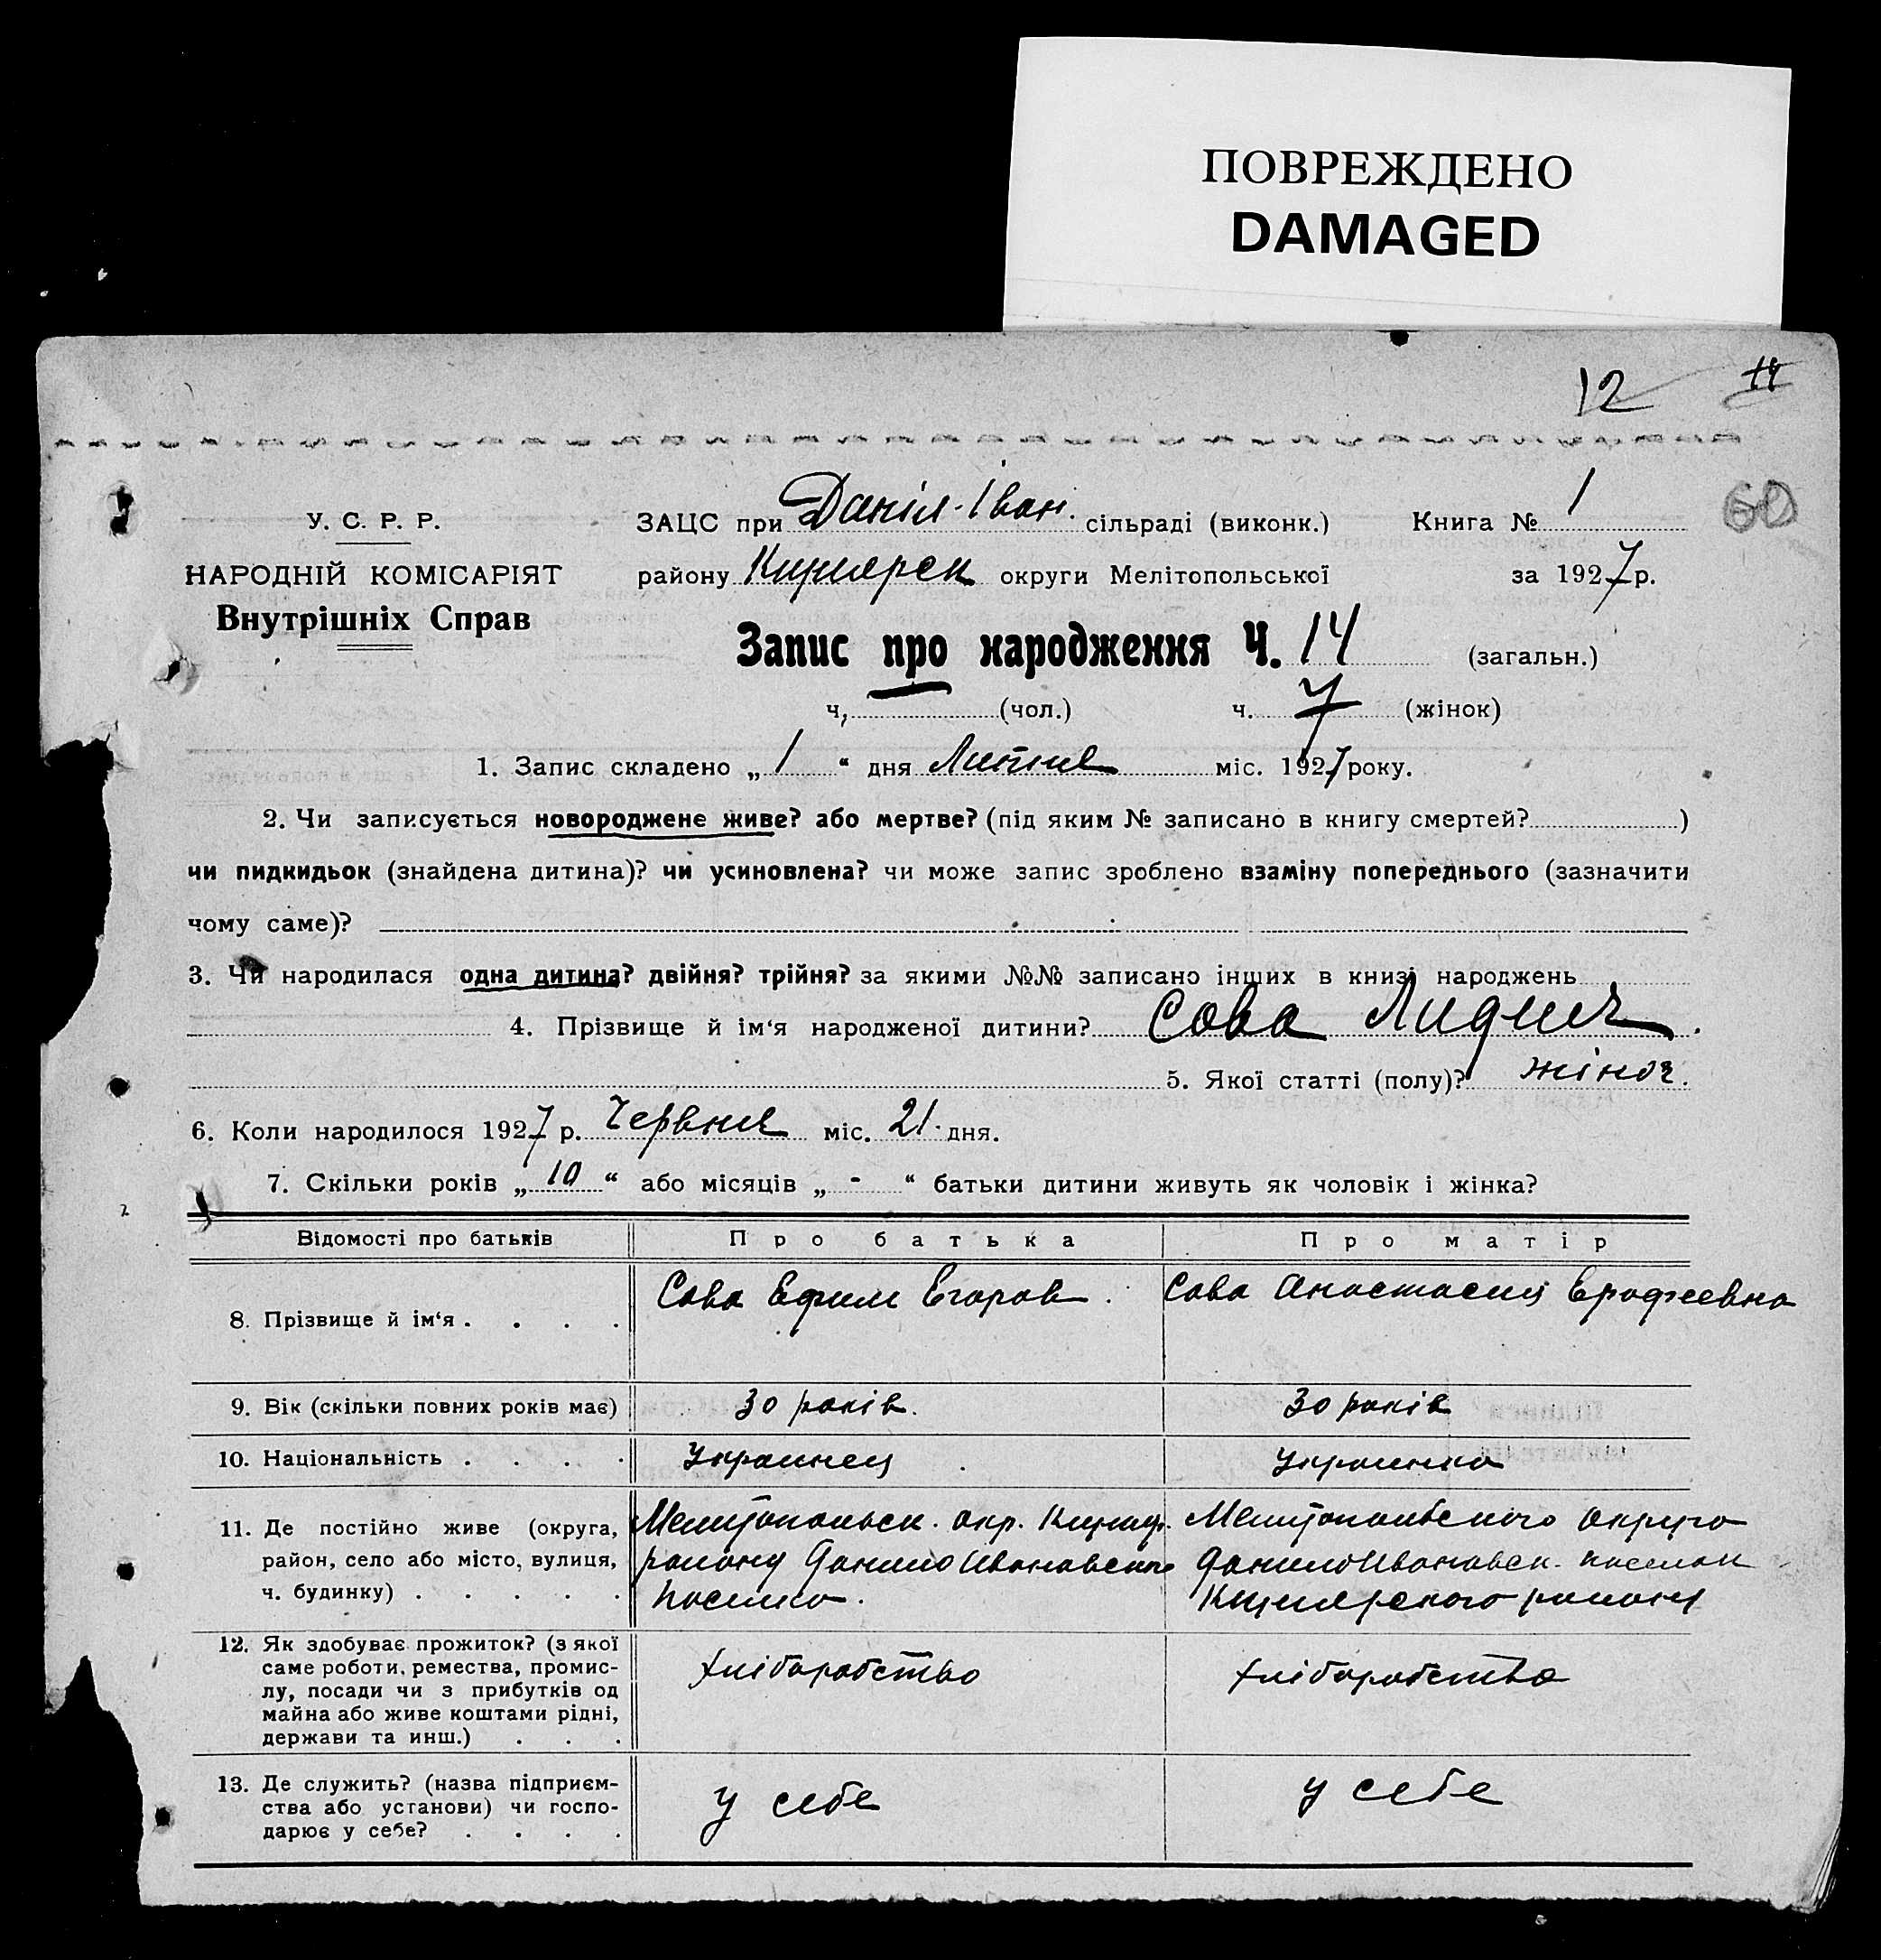 ПОВРЕЖДЕНО
DAMAGED
12 14
60
У. С. Р. Р.
НАРОДНІЙ КОМІСАРІЯТ
Внутрішніх Справ
ЗАЦС при Даніл-Іван. сільраді (виконк.) Книга № 1
району округи Мелітопольської за 1927 р.
Запис про народження Ч. 14 (загальн.)
ч, (чол.) ч. 7 (жінок)
1. Запис складено „ 1 “ дня Липня міс. 1927 року.
2. Чи записується новороджене живе? або мертве? (під яким № записано в книгу смертей? )
чи пидкидьок (знайдена дитина)? чи усиновлена? чи може запис зроблено взаміну попереднього (зазначити
чому саме)?
3. Чи народилася одна дитина? двійня? трійня? за якими №№ записано інших в книзі народжень
4. Прізвище й ім‘я народженої дитини? Сова Лидия.
5. Якої статті (полу)? жіноч.
6. Коли народилося 1927 р. Червня міс. 21. дня.
7. Скільки років „ 10 “ або місяців „ - “ батьки дитини живуть як чоловік і жінка?
Відомості про батьків Про батька Про матір
8. Прізвище й ім‘я . . . . Сова Ефим Егоров. Сова Анастасия Ерофеевна
9. Вік (скільки повних років має) 30 років. 30 років
10. Національність . . . . Украинец Украинка
11. Де постійно живе (округа, Мелитопольск. окр. Мелитопольского округа
район, село або місто, вулиця, району Данило Ивановского Данило Ивановск. поселок
ч. будинку) . . . . . поселка. району
12. Як здобуває прожиток? (з якої
саме роботи, ремества, промис-
лу, посади чи з прибутків од хліборобство хліборобство
майна або живе коштами рідні,
держави та инш.) . . .
13. Де служить? (назва підприєм-
ства або установи) чи госпо- у себе у себе
дарює у себе? . . . .